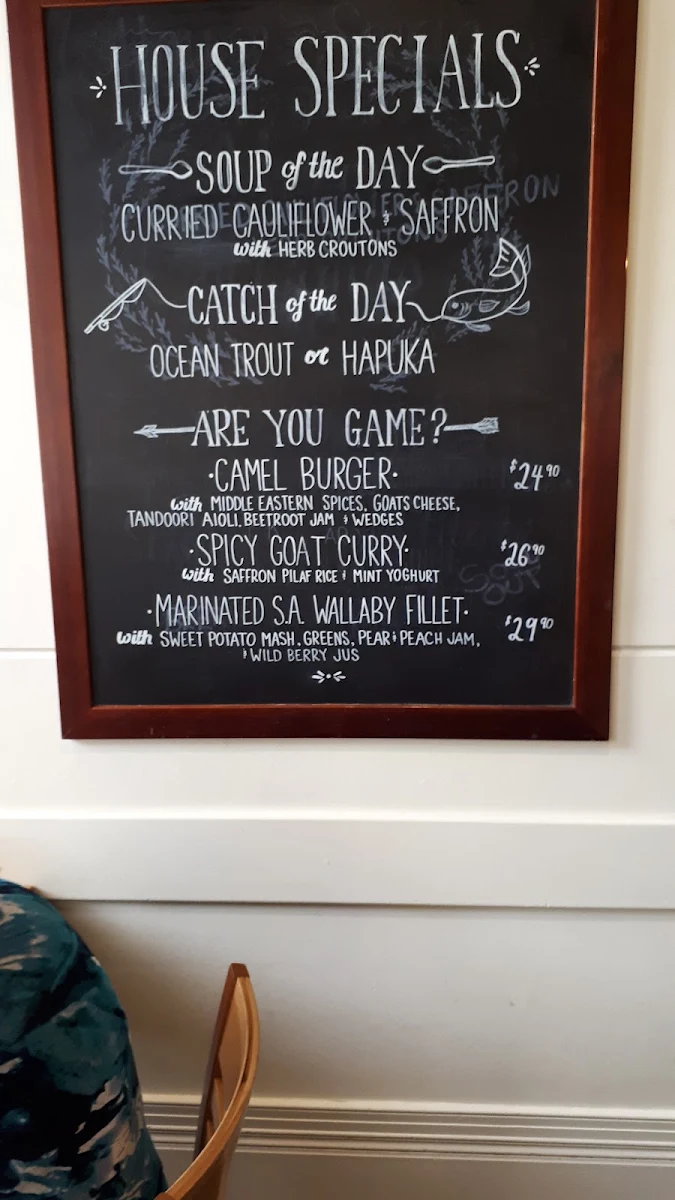 HOUSE SPECIALS
SOUP of the DAY
CURRIED CAULIFLOWER & SAFFRON
with HERB CROUTONS
CATCH of the DAY
OCEAN TROUT or HAPUKA
ARE YOU GAME?
·CAMEL BURGER· $24.90
with MIDDLE EASTERN SPICES, GOATS CHEESE,
TANDOORI AIOLI, BEETROOT JAM & WEDGES
·SPICY GOAT CURRY· $26.90
with SAFFRON PILAF RICE & MINT YOGHURT
·MARINATED S.A. WALLABY FILLET· $29.90
with SWEET POTATO MASH, GREENS, PEAR & PEACH JAM,
& WILD BERRY JUS